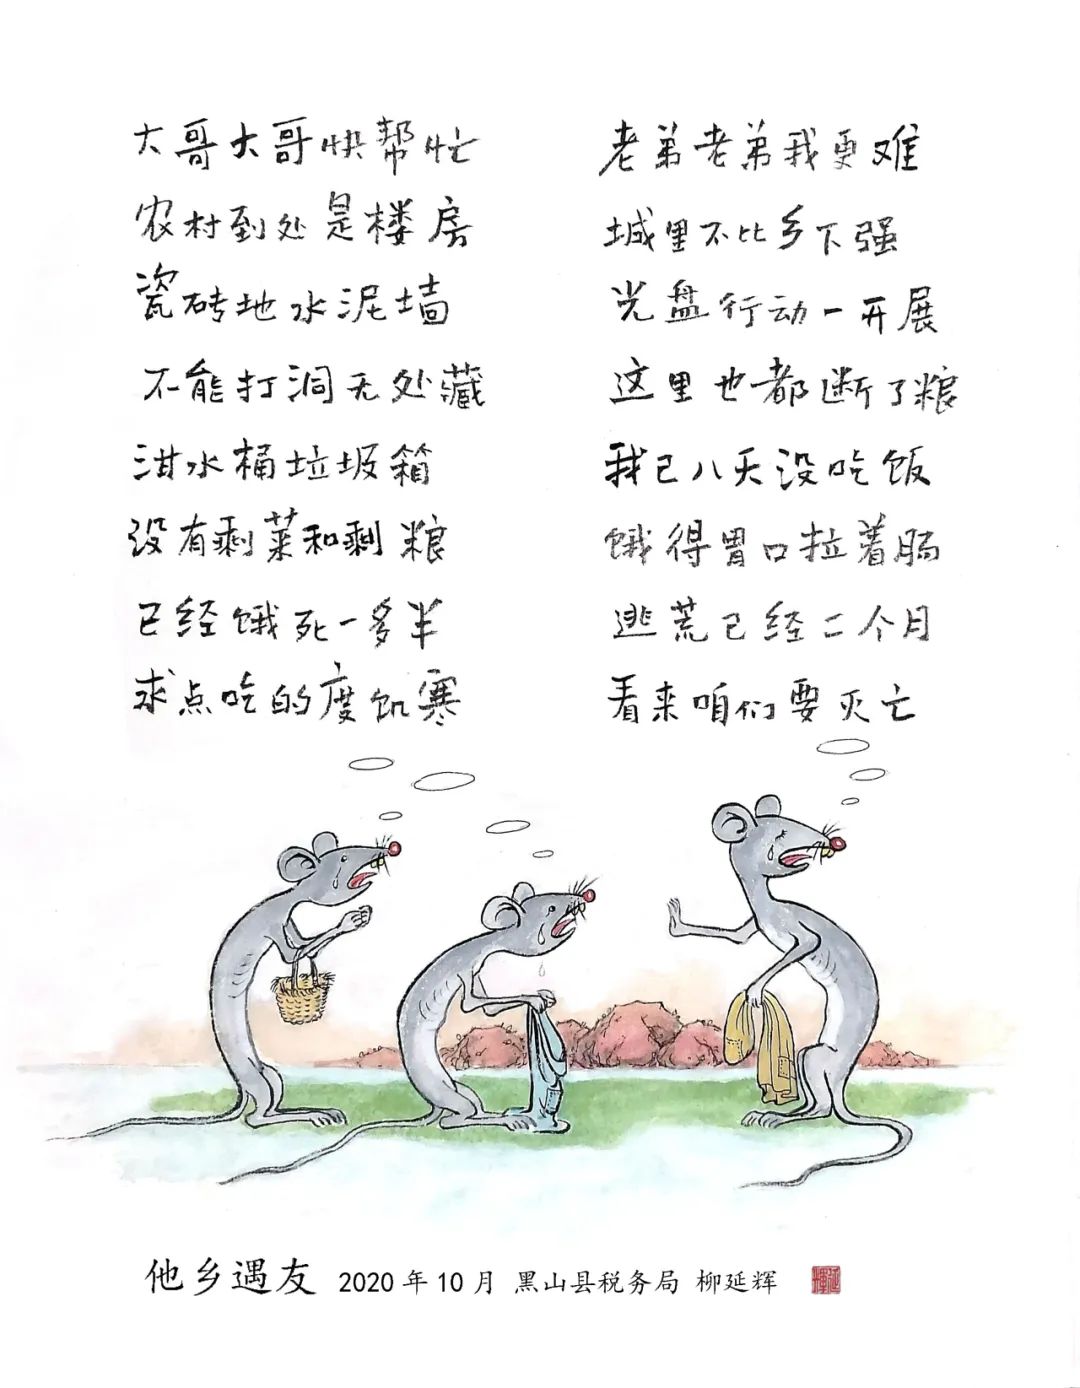 大哥大哥快帮忙
农村到处是楼房
瓷砖地水泥墙
不能打洞无处藏
泔水桶垃圾箱
没有剩菜和剩粮
已经饿死一多半
求点吃的度饥寒
老弟老弟我更难
城里不比乡下强
光盘行动一开展
这里也都断了粮
我已八天没吃饭
饿得胃口拉着肠
逃荒已经二个月
看来咱们要灭亡
他乡遇友 2020年10月 黑山县税务局 柳延辉